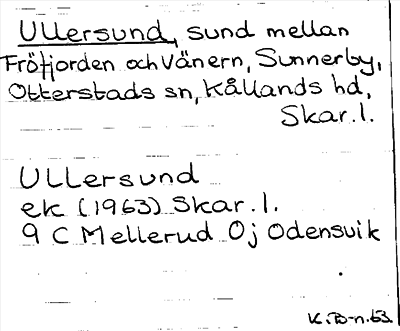 Ullersund, sund mellan
Fröfjorden och Vänern, Sunnerby,
Otterstads sn, Kållands hd,
Skar. l.
Ullersund
ek (1963) Skar. l.
9 C Mellerud Oj Odensvik
K.B-n. 63.